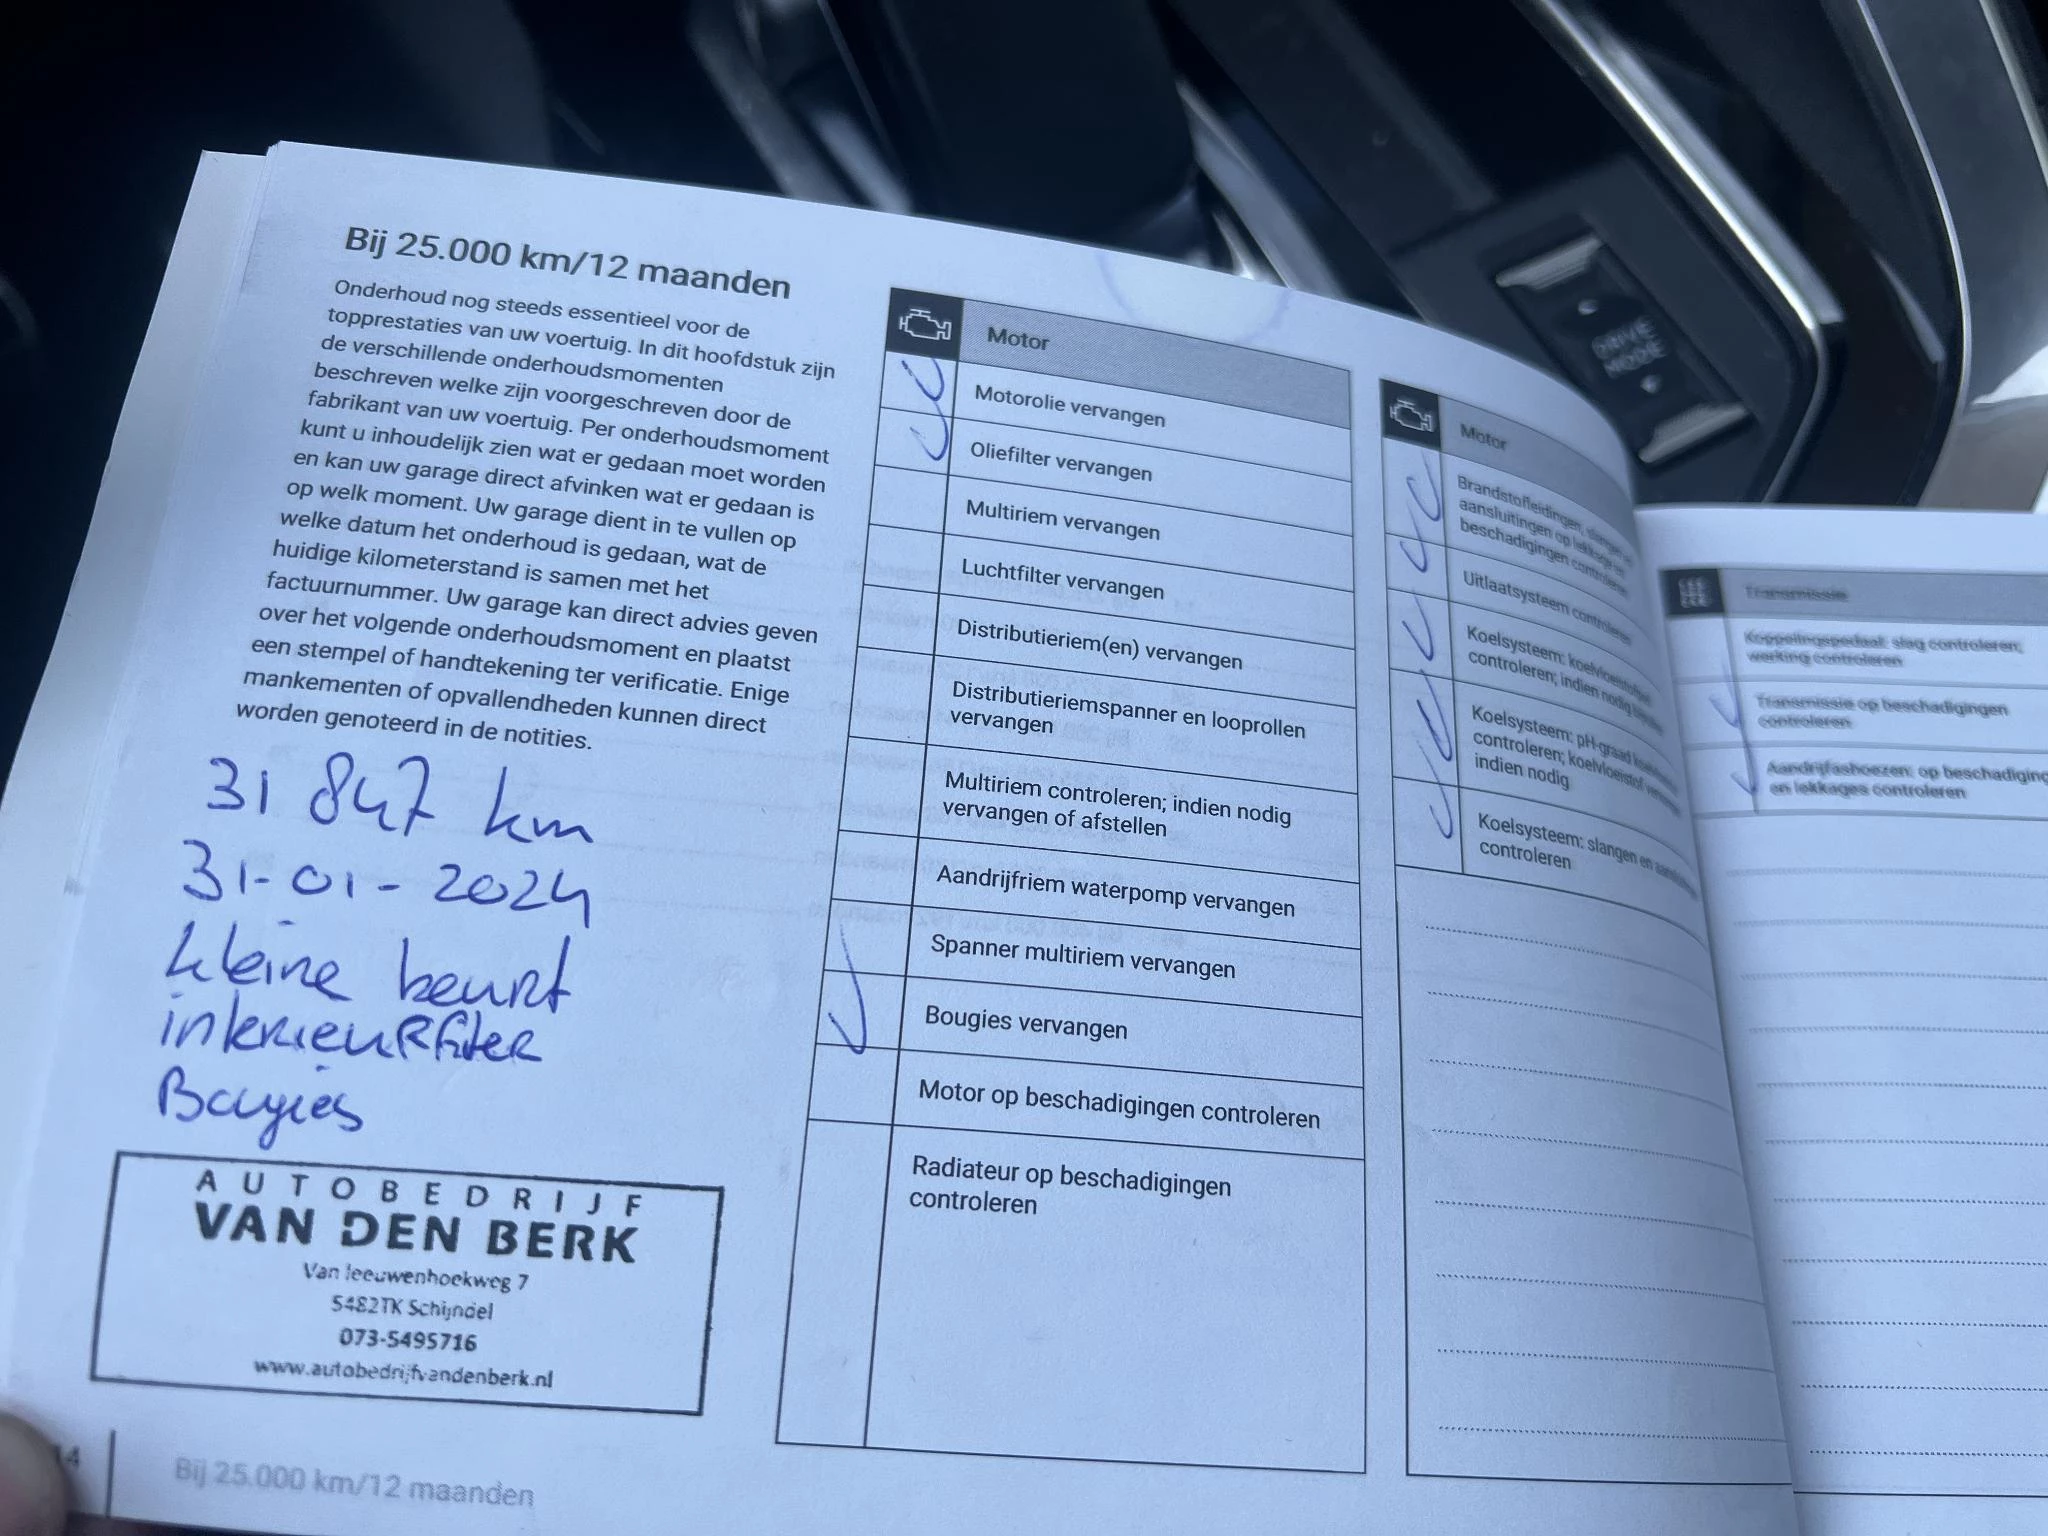 Bij 25.000 km/12 maanden
Onderhoud nog steeds essentieel voor de
topprestaties van uw voertuig. In dit hoofdstuk zijn
de verschillende onderhoudsmomenten
beschreven welke zijn voorgeschreven door de
fabrikant van uw voertuig. Per onderhoudsmoment
kunt u inhoudelijk zien wat er gedaan moet worden
en kan uw garage direct afvinken wat er gedaan is
op welk moment. Uw garage dient in te vullen op
welke datum het onderhoud is gedaan, wat de
huidige kilometerstand is samen met het
factuurnummer. Uw garage kan direct advies geven
over het volgende onderhoudsmoment en plaatst
een stempel of handtekening ter verificatie. Enige
mankementen of opvallendheden kunnen direct
worden genoteerd in de notities.
31 847 km
31-01-2024
kleine beurt
interieurfilter
Bougies
AUTOBEDRIJF
VAN DEN BERK
Van leeuwenhoekweg 7
5482TK Schijndel
073-5495716
www.autobedrijfvandenberk.nl
14
Bij 25.000 km/12 maanden
Motor
Motorolie vervangen
Oliefilter vervangen
Multiriem vervangen
Luchtfilter vervangen
Distributieriem(en) vervangen
Distributieriemspanner en looprollen
vervangen
Multiriem controleren; indien nodig
vervangen of afstellen
Aandrijfriem waterpomp vervangen
Spanner multiriem vervangen
Bougies vervangen
Motor op beschadigingen controleren
Radiateur op beschadigingen
controleren
Motor
Brandstofleidingen, slangen en
aansluitingen op lekkage en
beschadigingen controleren
Uitlaatsysteem controleren
Koelsysteem: koelvloeistofpeil
controleren; indien nodig
Koelsysteem: pH-graad
controleren; koelvloeistof
indien nodig
Koelsysteem: slangen en
controleren
Transmissie
Koppelingspedaal: slag controleren;
werking controleren
Transmissie op beschadigingen
controleren
Aandrijfashoezen: op beschadiging
en lekkages controleren
DRIVE
MODE